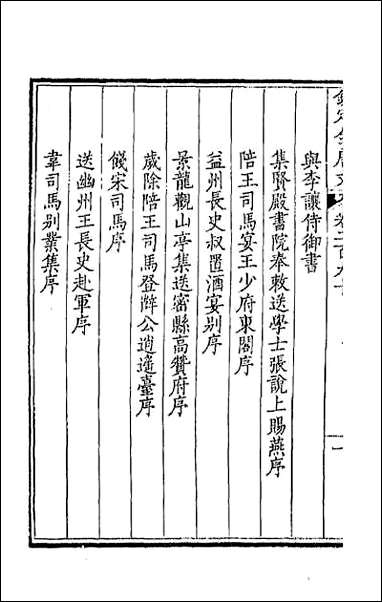 與李讓侍御書
集賢殿書院奉敕送學士張說上賜燕序
陪王司馬宴王少府東閣序
益州長史叔置酒宴别序
景龍觀山亭集送密縣高贊府序
歲除陪王司馬登薛公逍遙臺序
餞宋司馬序
送幽州王長史赴軍序
韋司馬别業集序